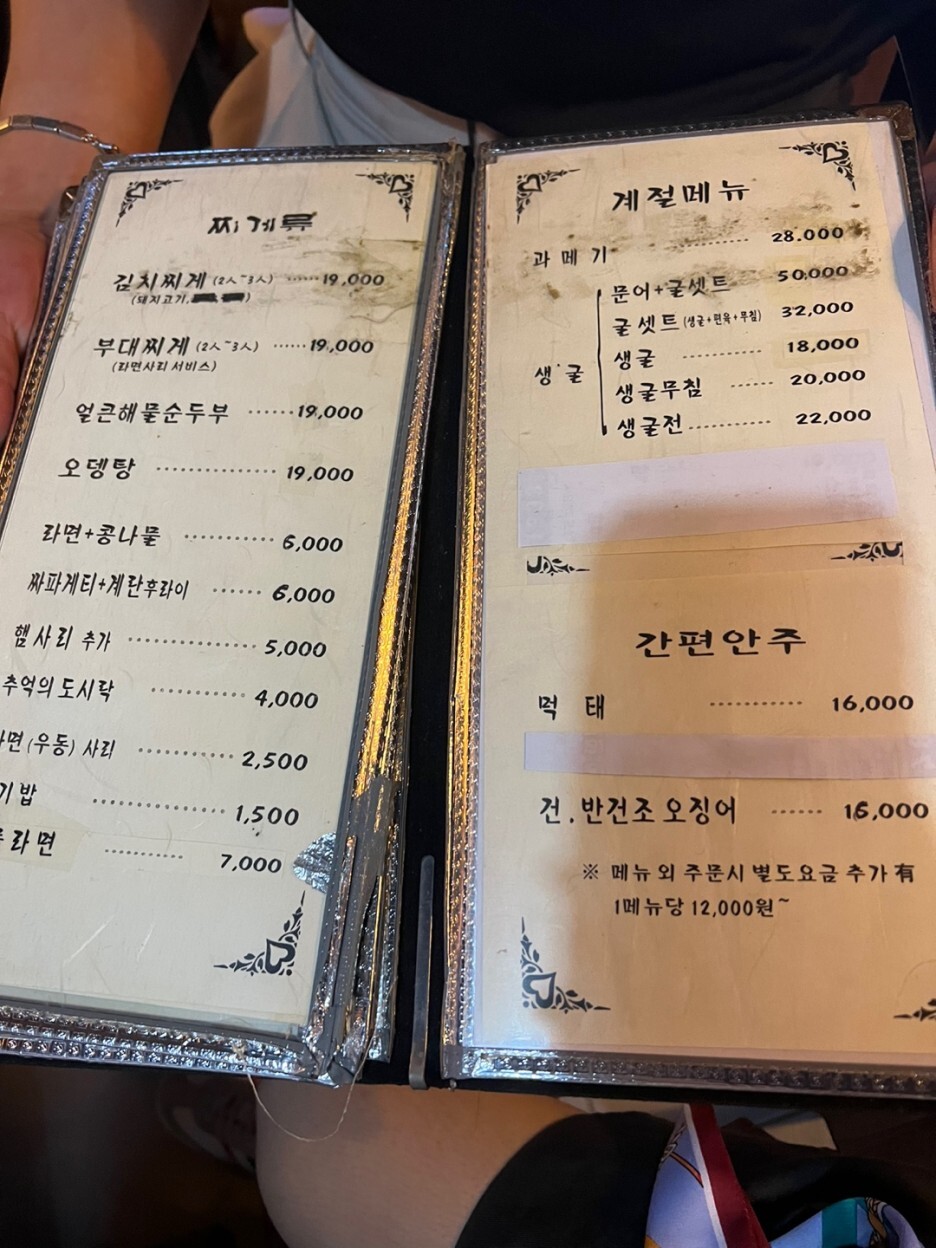 찌게류
김치찌게 (2人~3人) ······ 19,000
(돼지고기,
부대찌게 (2人~3人) ······ 19,000
(라면사리 서비스)
얼큰해물순두부 ······ 19,000
오뎅탕 ·············· 19,000
라면+콩나물 ·········· 6,000
짜파게티+계란후라이 ······ 6,000
햄사리 추가 ·············· 5,000
추억의 도시락 ·········· 4,000
면 (우동) 사리 ·········· 2,500
기밥 ·············· 1,500
라면 ·········· 7,000
계절메뉴
과메기 ·········· 28.000
생굴
문어+굴셋트 50,000
굴셋트 (생굴+편육+무침) 32,000
생굴 ·········· 18,000
생굴무침 ······ 20,000
생굴전 ·········· 22,000
간편안주
먹 태 ·········· 16,000
건, 반건조 오징어 ······ 16,000
※ 메뉴 외 주문시 별도요금 추가 有
1메뉴당 12,000원~